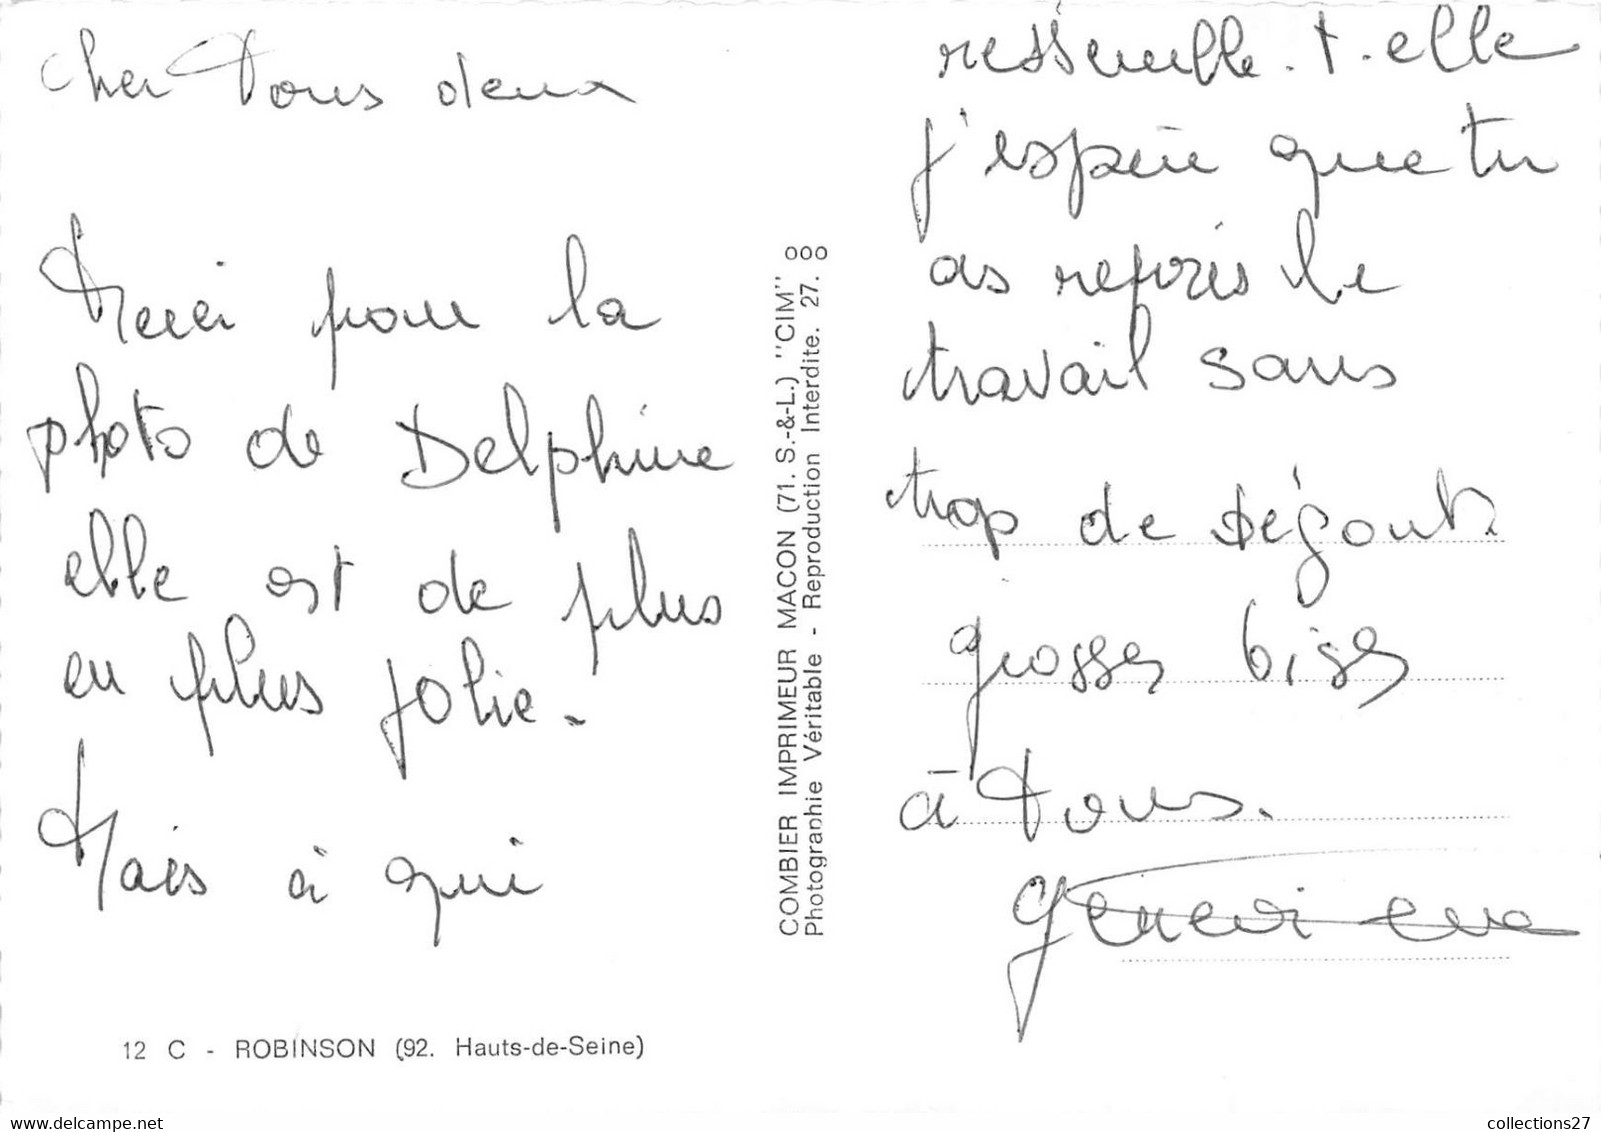 Cher Tous deux
Merci pour la
photo de Delphine
elle est de plus
en plus jolie.
Mais à qui
12 C - ROBINSON (92. Hauts-de-Seine)
COMBIER IMPRIMEUR MACON (71. S.-&-L.) "CIM"
Photographie Véritable - Reproduction Interdite. 27.
ressemble.t.elle
j'espère que tu
as repris le
travail sans
trop de dégout.
grosses bises
à Tous.
Geneviève
collections27